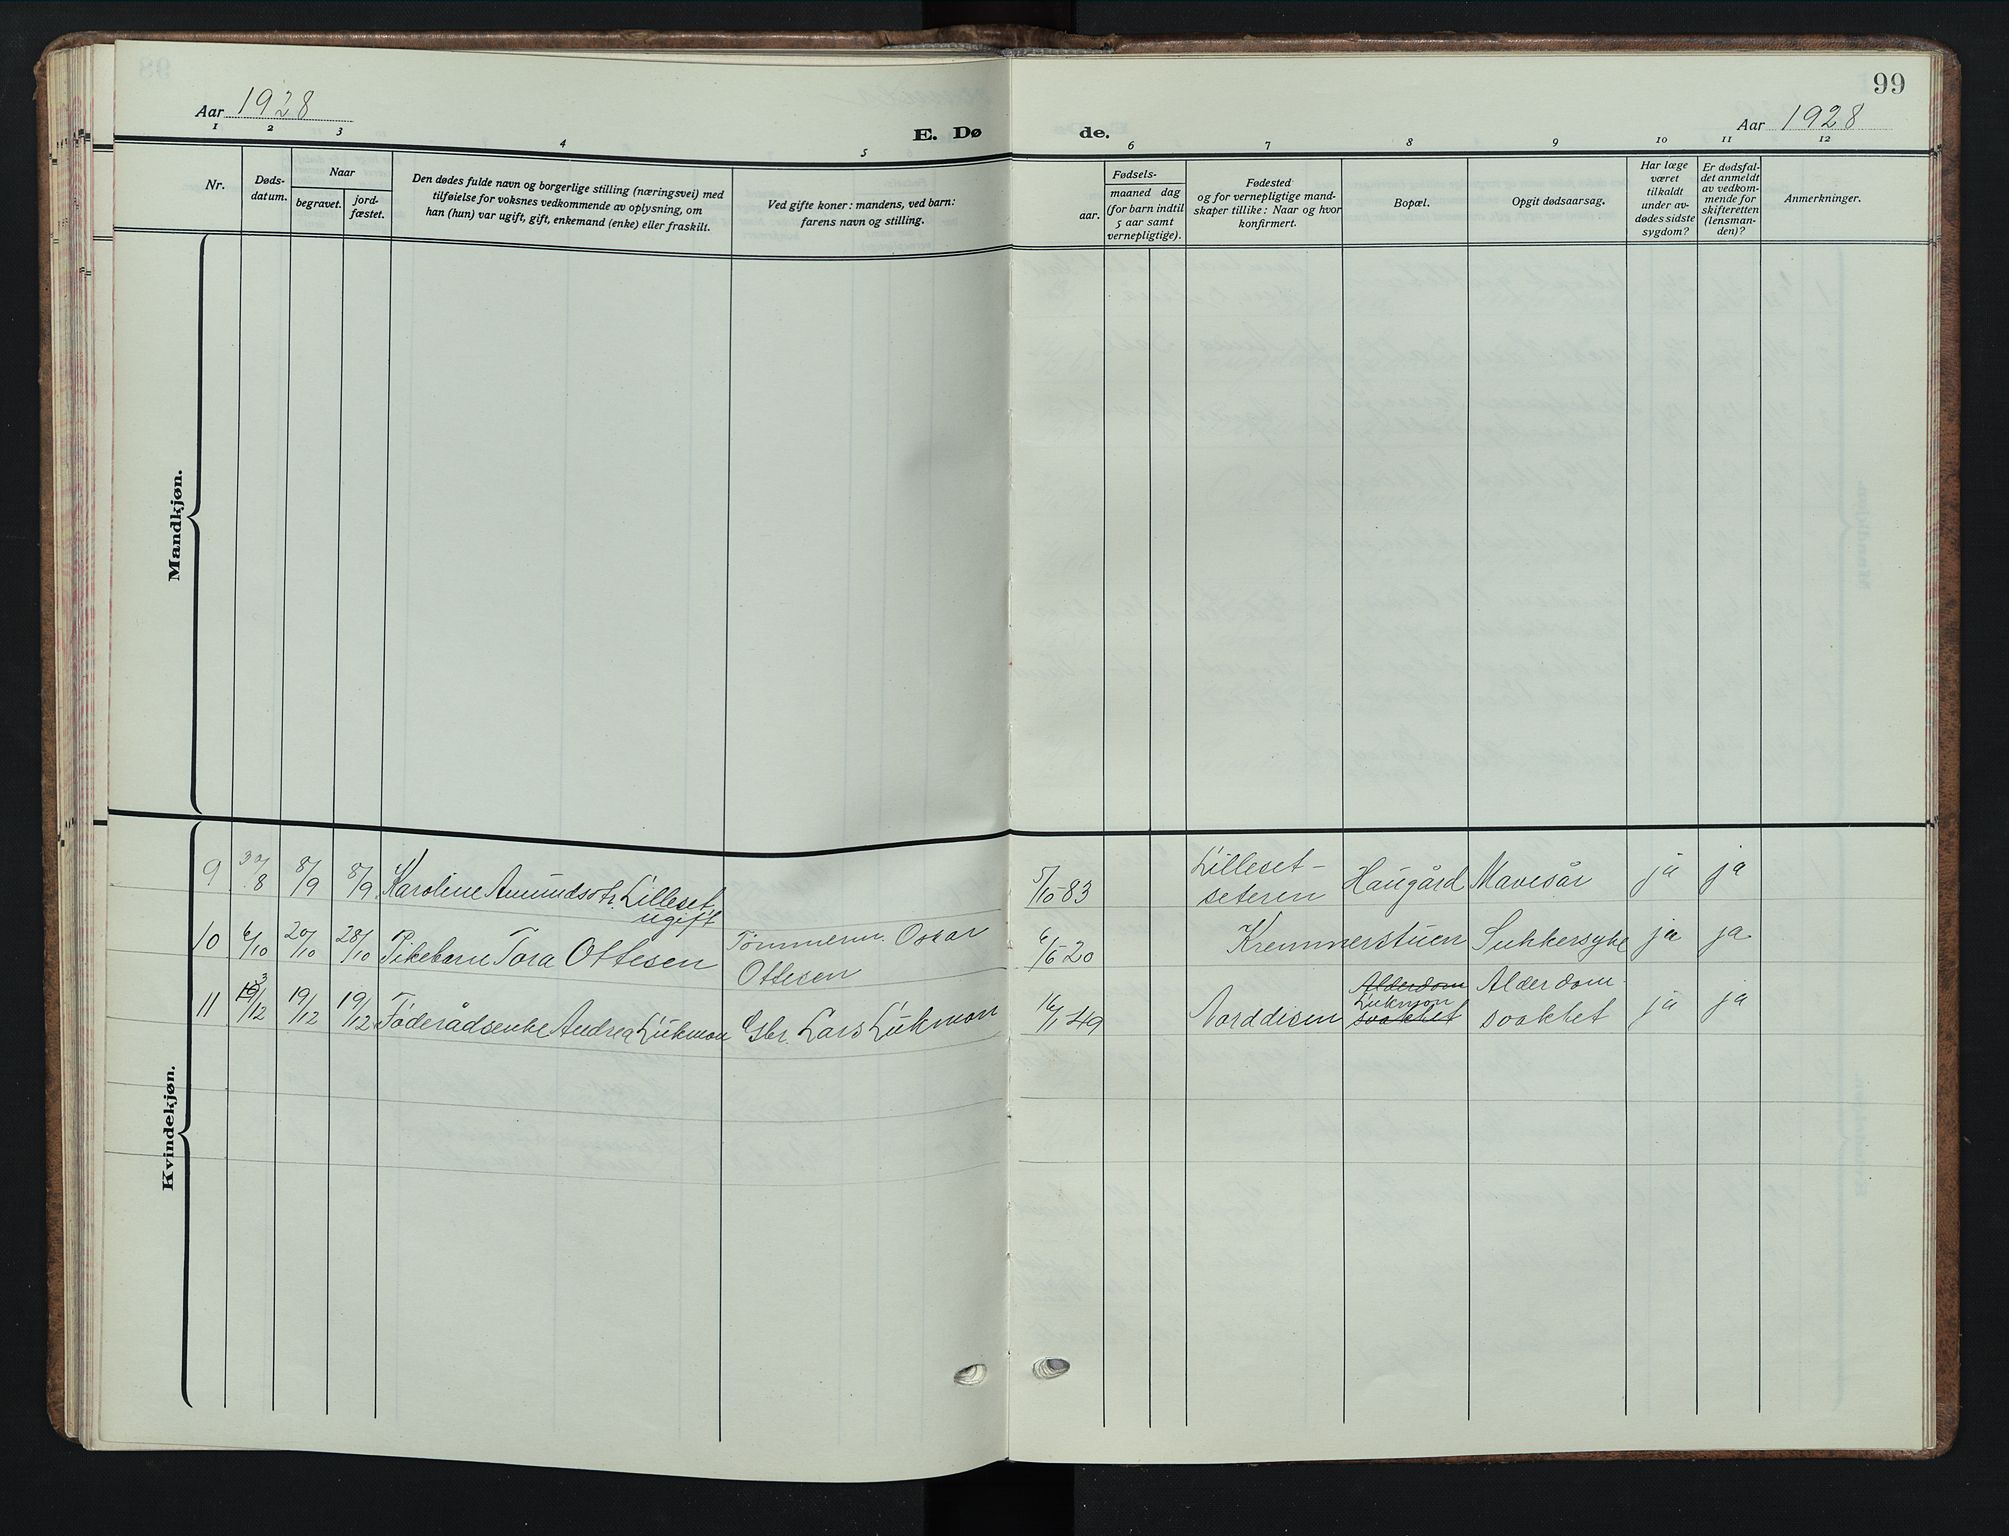 Aar 1928
E. Dø
de.
99
Aar 1928
1 2 3 4 5 6 7 8 9 10 11 12
Nr.
Døds-
datum.
Naar
begravet.
jord-
fæstet.
Den dødes fulde navn og borgerlige stilling (næringsvei) med
tilføielse for voksnes vedkommende av oplysning, om
han (hun) var ugift, gift, enkemand (enke) eller fraskilt.
Ved gifte koner: mandens, ved barn:
farens navn og stilling.
Fødsels-
aar.
maaned dag
(for barn indtil
5 aar samt
vernepligtige).
Fødested
og for vernepligtige mand-
skaper tillike: Naar og hvor
konfirmert.
Bopæl.
Opgit dødsaarsag.
Har læge
været
tilkaldt
under av-
dødes sidste
sygdom?
Er dødsfal-
det anmeldt
av vedkom-
mende for
skifteretten
(lensman-
den)?
Anmerkninger.
Mandkjøn.
Kvindekjøn.
9 30/8 8/9 8/9 Karoline Amundsdtr. Lilleset
ugift
5/10-83 Lilleset-
seteren Haugård Mavesår ja ja
10 6/10 20/10 28/10 Pikebarn Tora Ottesen Tømmerm. Oscar
Ottesen
6/6-20 Kremmerstuen Sukkersyke ja ja
11 13/12 19/12 19/12 Føderådsenke Andrea Lukmon Gbr. Lars Lukmon
16/1 49 Norddisen Alderdom
Lukmon
svakhet
Alderdom-
svakhet ja ja